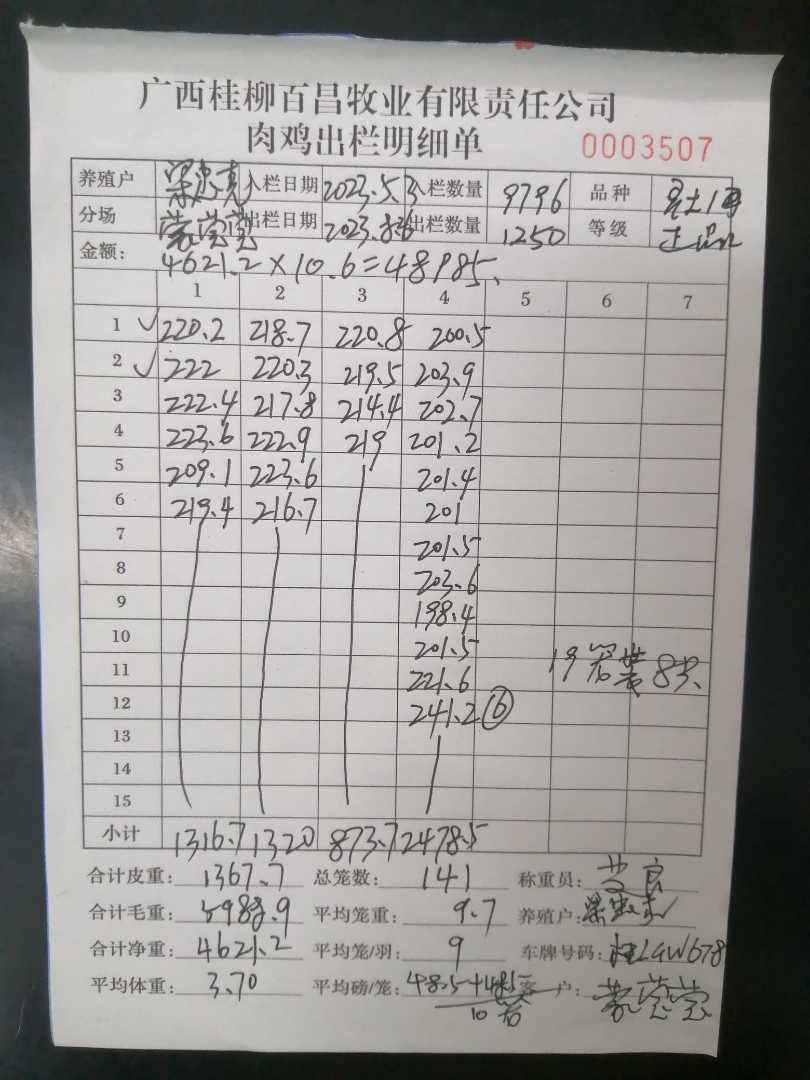 广西桂柳百昌牧业有限责任公司
肉鸡出栏明细单 0003507
养殖户 入栏日期 2023.5.3 入栏数量 9796 品种
分场 蒙莹莹 出栏日期 2023.8.26 出栏数量 1250 等级
金额: 4621.2×10.6=48985.
1 2 3 4 5 6 7
1 ✓ 220.2 218.7 220.8 200.5
2 ✓ 222 220.3 219.5 203.9
3 222.4 217.8 214.4 202.7
4 223.6 222.9 219 201.2
5 209.1 223.6 201.4
6 219.4 216.7 201
7 201.5
8 203.6
9 198.4
10 201.5
11 221.6 19笼装8只
12 241.2 ⑥
13
14
15
小计 1316.7 1320 873.7 2478.5
合计皮重: 1367.7 总笼数: 141 称重员:
合计毛重: 5988.9 平均笼重: 9.7 养殖户:
合计净重: 4621.2 平均笼/羽: 9 车牌号码: 桂LGW678
平均体重: 3.70 平均磅/笼: 48.5+485 客户: 蒙莹莹
10